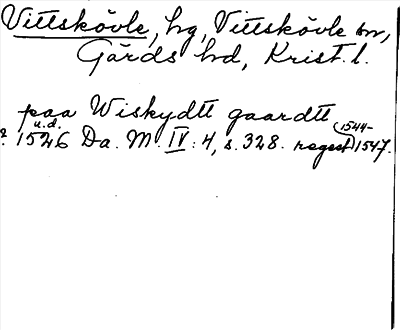 Vittskövle, hg, Vittskövle sn,
Gärds hd, Krist. l.
paa Wiskydtt gaardtt
u.d. 1544-
? 1526 Da. M. IV: 4, s. 328. regest) 1547.